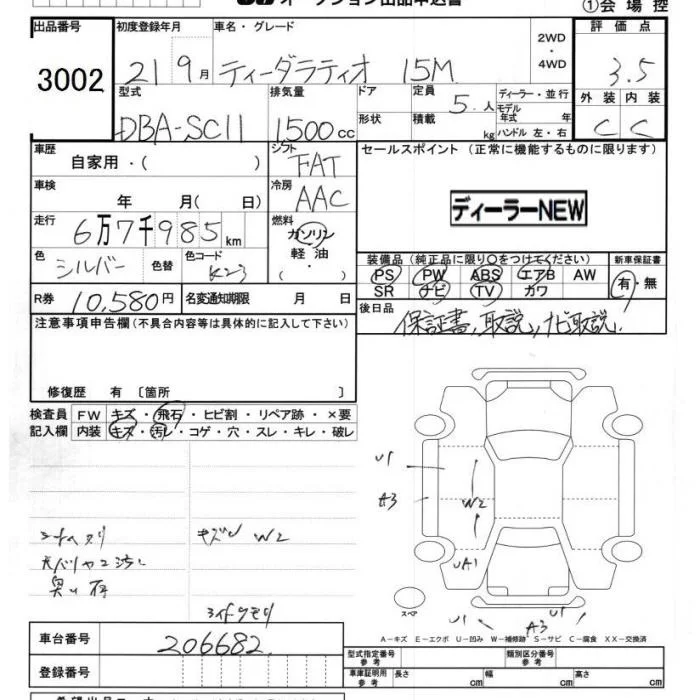 オークション出品申込書
①会場控
出品番号 初度登録年月 車名・グレード 2WD・4WD 評価点
3002 21 9月 ティーダラティオ 15M 3.5
型式 排気量 ドア 定員 5.人 ディーラー・並行 外装 内装
DBA-SC11 1500cc 形状 積載 kg モデル年式 年 ハンドル 左・右 C C
車歴 自家用・( ) シフト FAT セールスポイント (正常に機能するものに限ります)
車検 年 月( 日) 冷房 AAC
ディーラーNEW
走行 6万7千985km 燃料 ガソリン 軽油・( )
色 シルバー 色替 色コード K23
装備品 (純正品に限り○をつけてください) 新車保証書
PS PW ABS エアB AW 有・無
SR ナビ TV カワ
R券 10,580円 名変通知期限 月 日
後日品 保証書,取説,ナビ取説.
注意事項申告欄(不具合内容等は具体的に記入して下さい)
修復歴 有 〔箇所 〕
検査員 FW キズ・飛石・ヒビ割・リペア跡・×要
記入欄 内装 キズ・汚レ・コゲ・穴・スレ・キレ・破レ
U1
A3 W2
キズ W2
UA1
スペ
U1 A3 U1
A-キズ E-エクボ U-凹み W-補修跡 S-サビ C-腐食 XX-交換済
車台番号 206682
型式指定番号 参考 類別区分番号 参考
登録番号
車庫証明用 参考 長さ cm 幅 cm 高さ cm